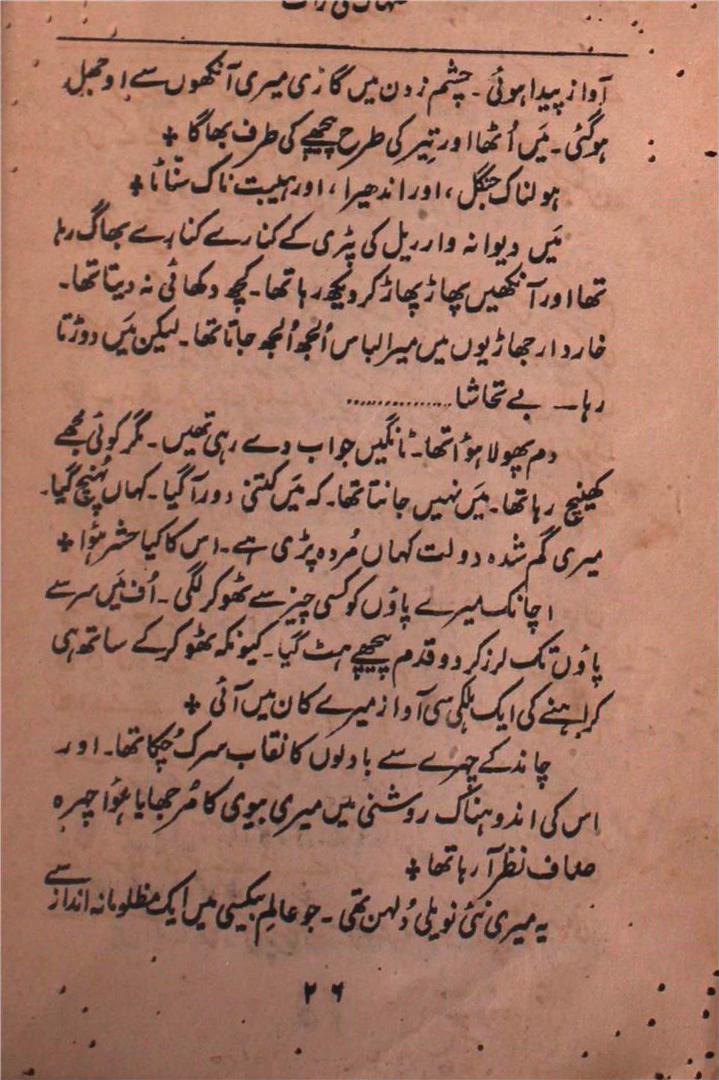 آواز پیدا ہوئی۔ چشم زدن میں گاڑی میری آنکھوں سے اوجھل
ہوگئی۔ مَیں اُٹھا اور تیر کی طرح پیچھے کی طرف بھاگا +
ہولناک جنگل، اور اندھیرا، اور ہیبت ناک سنّاٹا +
مَیں دیوانہ وار ریل کی پٹری کے کنارے کنارے بھاگ رہا
تھا اور آنکھیں پھاڑ پھاڑ کر دیکھ رہا تھا۔ کچھ دکھائی نہ دیتا تھا۔
خاردار جھاڑیوں میں میرا لباس اُلجھ اُلجھ جاتا تھا۔ لیکن مَیں دوڑتا
رہا — بے تحاشا ..............
دم پھولا ہؤا تھا۔ ٹانگیں جواب دے رہی تھیں۔ مگر کوئی مُجھے
کھینچ رہا تھا۔ مَیں نہیں جانتا تھا۔ کہ مَیں کتنی دور آگیا۔ کہاں پہُنچ گیا۔
میری گم شدہ دولت کہاں مُردہ پڑی ہے۔ اس کا کیا حشر ہؤا +
اچانک میرے پاؤں کو کسی چیز سے ٹھوکر لگی۔ اُف مَیں سر سے
پاؤں تک لرز کر دو قدم پیچھے ہٹ گیا۔ کیونکہ ٹھوکر کے ساتھ ہی
کراہنے کی ایک ہلکی سی آواز میرے کان میں آئی +
چاند کے چہرے سے بادلوں کا نقاب سرک چُکا تھا۔ اور
اس کی اندوہناک روشنی میں میری بیوی کا مُرجھایا ہؤا چہرہ
صاف نظر آ رہا تھا +
یہ میری نئی نویلی دُلہن تھی۔ جو عالمِ بیکسی میں ایک مظلومانہ انداز سے
۲۶